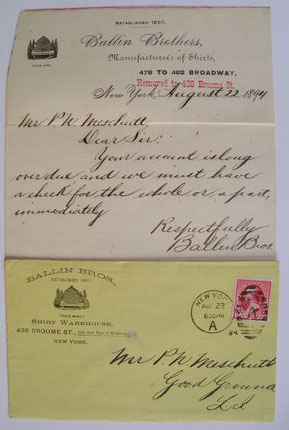 ESTABLISHED 1857.
Ballin Brothers,
Manufacturers of Shirts,
478 TO 482 BROADWAY,
Removed to 438 Broome St.
New York, August 22 1894
Mr P. N. Meschutt
Dear Sir:
Your account is long
over due and we must have
a check for the whole or a part,
immediately
Respectfully
Ballin Bros
BALLIN BROS.,
ESTABLISHED 1857.
SHIRT WAREHOUSE,
438 BROOME ST.,
NEW YORK.
NEW YORK
AUG 23
630PM
A
94
Mr P. N. Meschutt
Good Ground
L.I